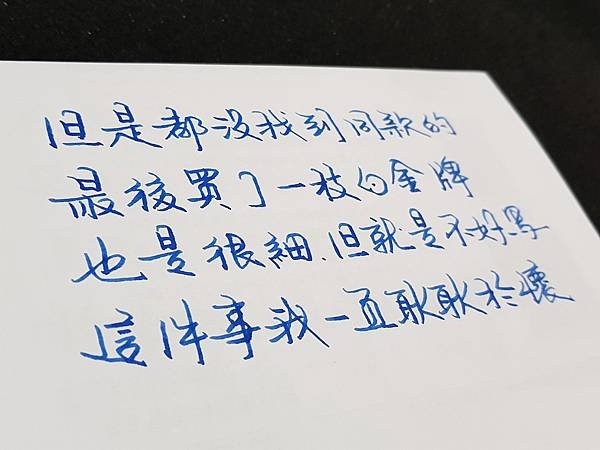 但是都沒找到同款的
最後買了一枝白金牌
也是很細.但就是不好写
這件事我一直耿耿於懷